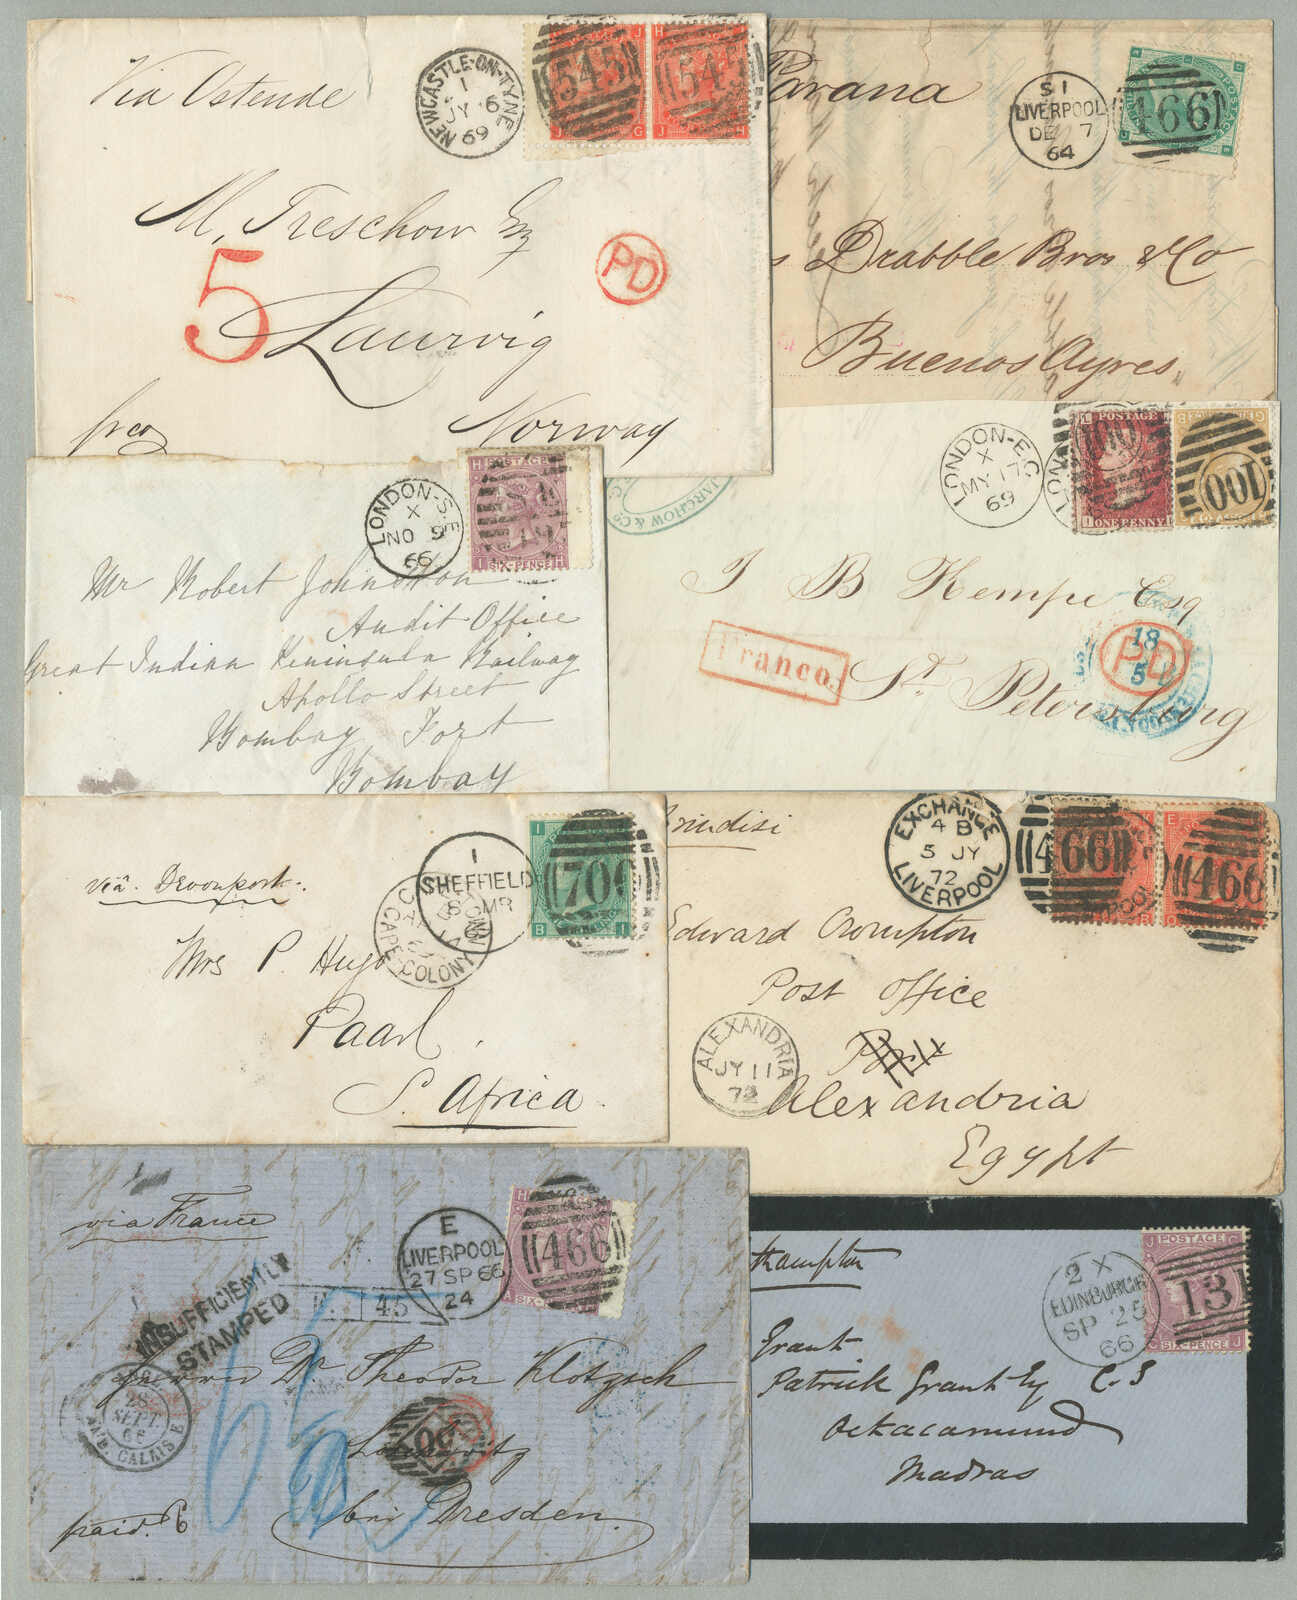 Via Ostende
NEWCASTLE-ON-TYNE
1
JY 6
69
545
545
J
G
H
J
J
H
M. Treschow Esq
5
PD
Laurvig
frco
Norway
Parana
S1
LIVERPOOL
DE 7
64
466
POSTAGE
Drabble Bros & Co
Buenos Ayres
LONDON-S.E
X
NO 9
66
H POSTAGE
I SIX-PENCE H
Mr Robert Johnston
Audit Office
Great Indian Peninsula Railway
Apollo Street
Bombay Fort
Bombay
LONDON-E.C
X
MY 17
69
POSTAGE
ONE PENNY
100
JARCHOW & Co
J B Kempe Esq
Franco.
PD
18
5
St. Petersburg
via Devonport
1
SHEFFIELD
8 MR
CAPE COLONY
I
B
I
700
Mrs P. Hugo
Paarl
S. Africa
Brindisi
EXCHANGE
4 B
5 JY
72
LIVERPOOL
466
466
Edward Crompton
Post Office
ALEXANDRIA
JY 11
72
Alexandria
Egypt
via France
INSUFFICIENTLY
STAMPED
E
LIVERPOOL
27 SP 66
24
45
466
28
SEPT.
66
CALAIS
Herrn Dr Theodor Klotzsch
bei Dresden
paid. 6
thampton
2 X
EDINBURGH
SP 25
66
J POSTAGE C
C SIX-PENCE J
131
Grant
Patrick Grant Esq C.S
Ootacamund
Madras